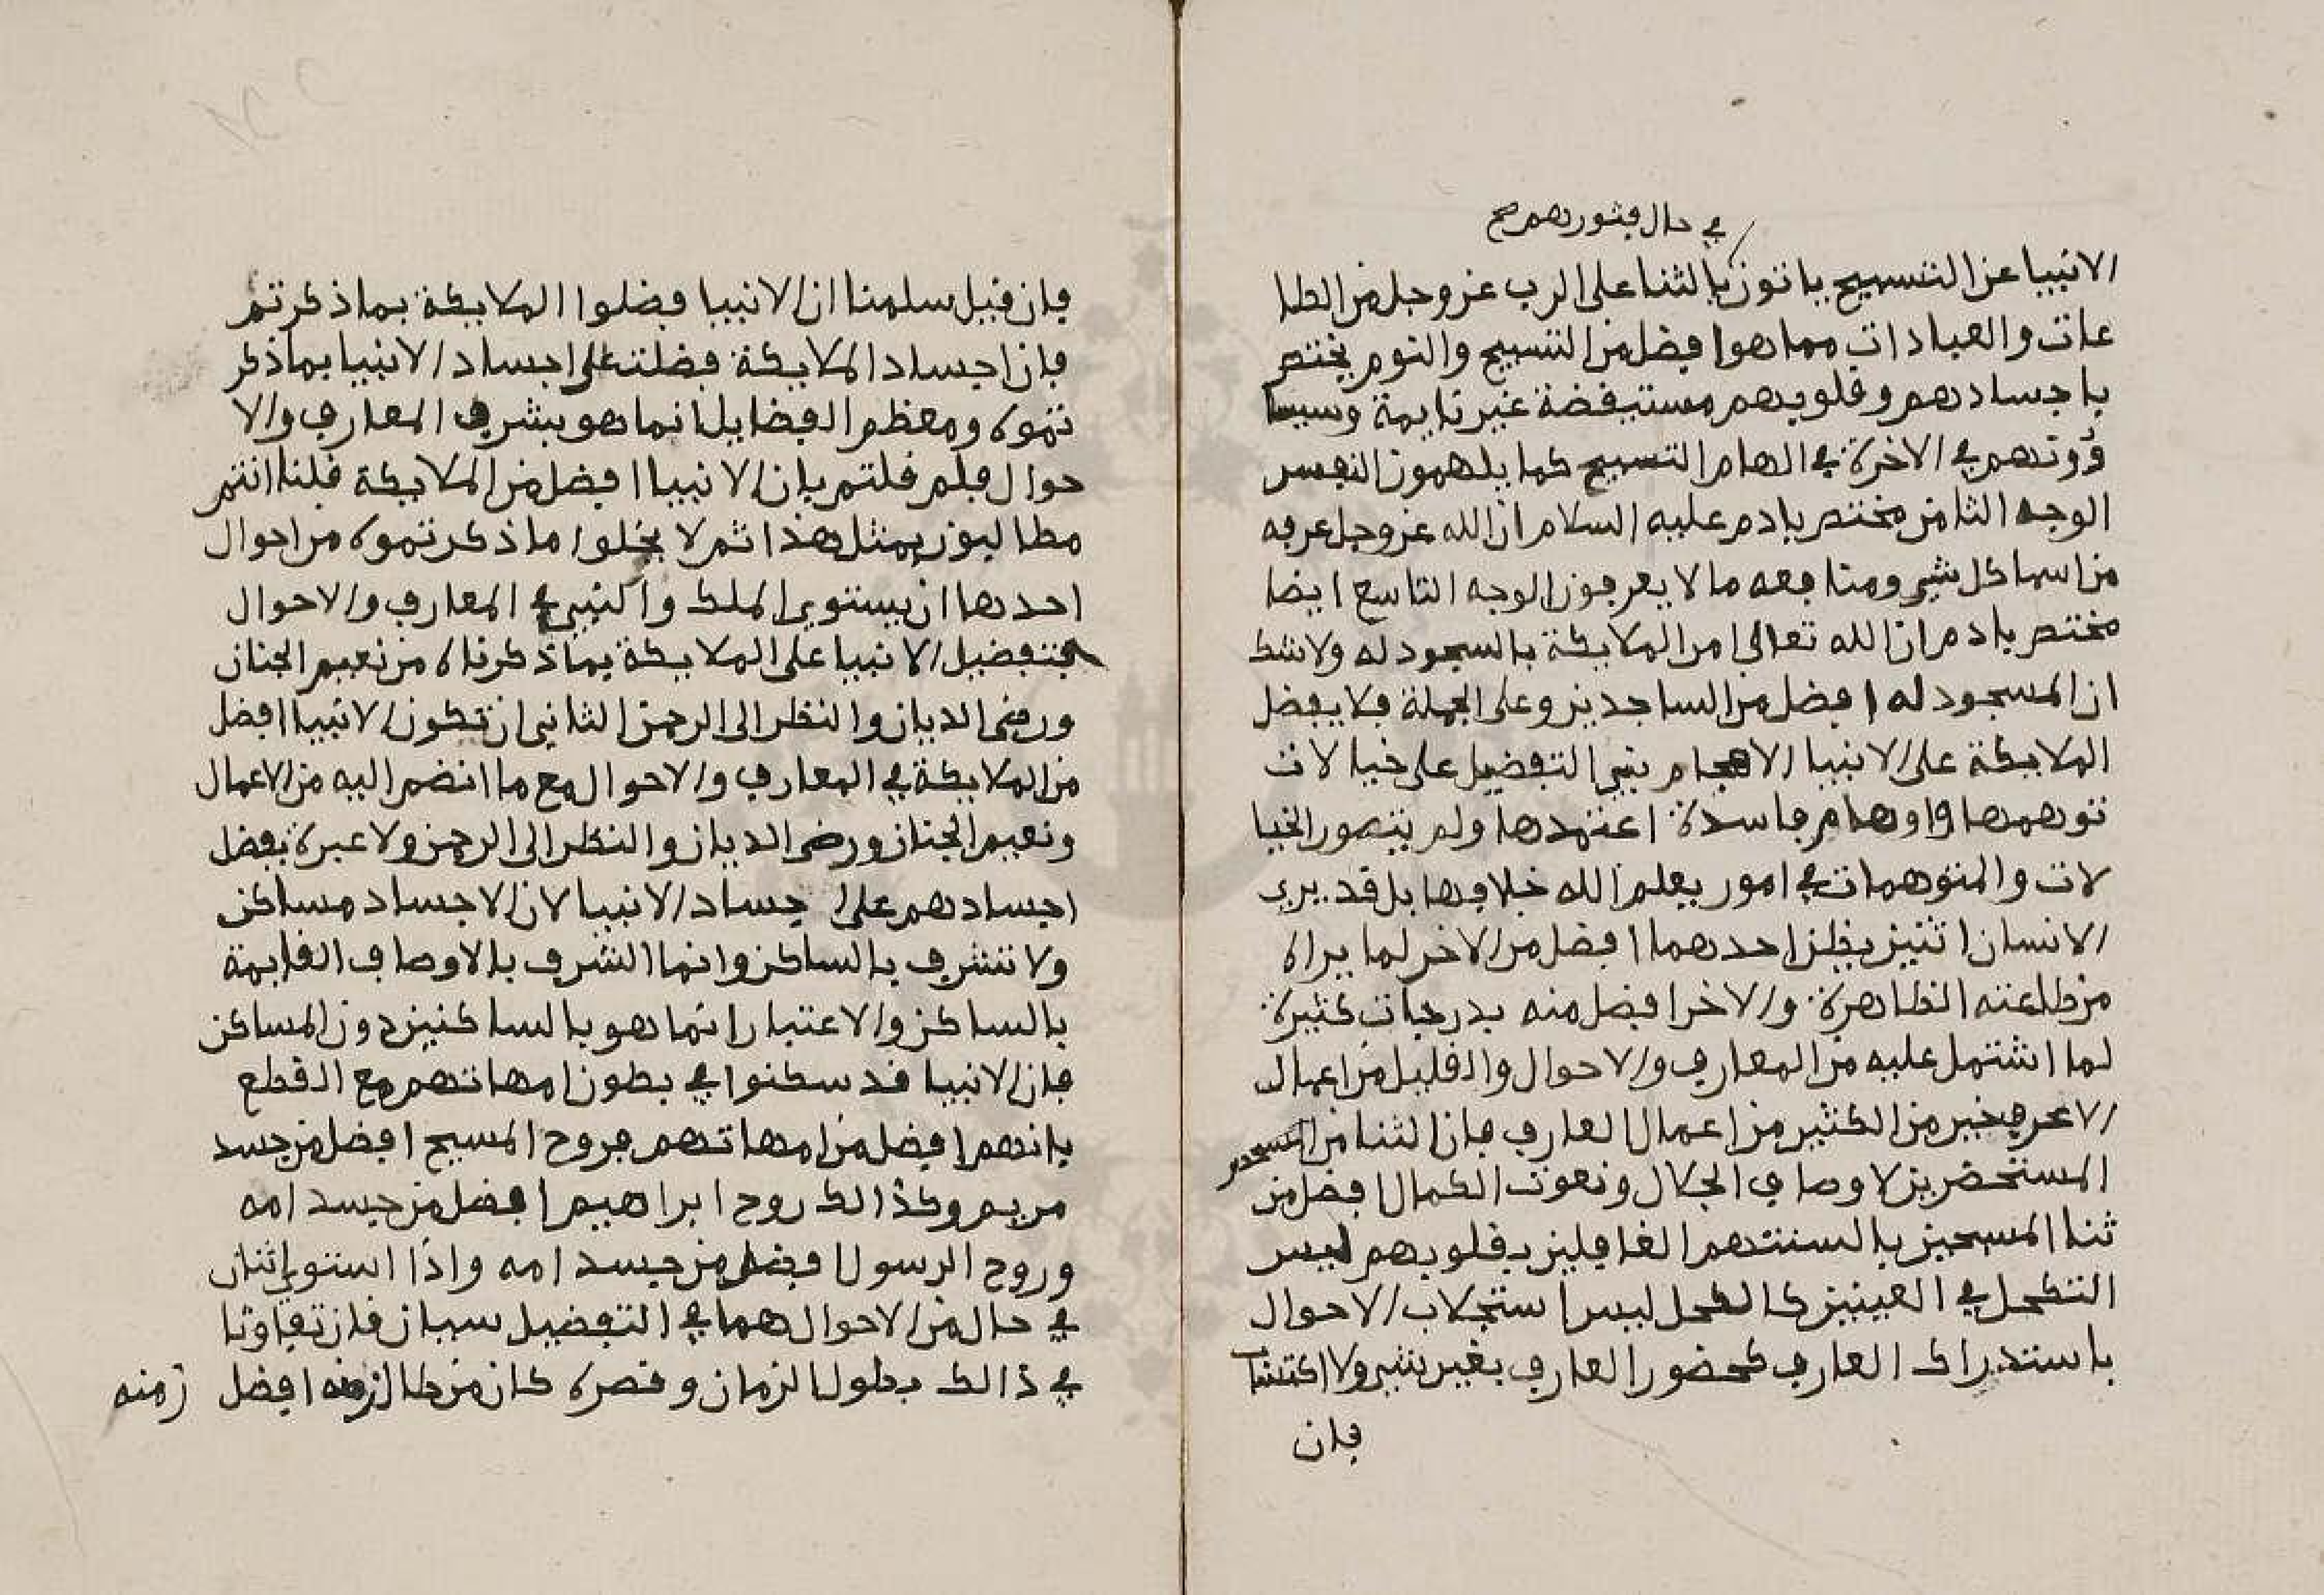 في حال فتورهم صح
الانبيا عن التسبيح ياتون بالثنا على الرب عز وجل من الطا
عات والعبادات مما هوا افضل من التسبيح والنوم يختص
باجسادهم وقلوبهم مستيقضة غير نايمة وسيسا
وونهم في الاخرة في الهام التسبيح كما يلهمون النفس
الوجه الثامن مختص بادم عليه السلام ان الله عز وجل عرفه
من اسما كل شي ومنافعه ما لا يعرفون الوجه التاسع ايضا
مختص بادم ان الله تعالى امر الملايكة بالسجود له ولا شك
ان المسجود له افضل من الساجدين وعلى الجملة فلا يفضل
الملايكة على الانبيا الا هجام يبني التفضيل على خيالات
توهمها واوهام فاسدة اعتمدها ولم يتصور الخيا
لات والمتوهمات في امور يعلم الله خلافها بل قد يرى
الانسان اثنين يظن احدهما افضل من الاخر لما يراه
من طاعته الظاهرة والاخر افضل منه بدرجات كثيرة
لما اشتمل عليه من المعارف والاحوال والقليل من اعمال
الاعرف خير من الكثير من اعمال العارف فان الثنا من
المستحضرين لاوصاف الجلال ونعوت الكمال افضل من
ثنا المسبحين بالسنتهم الغافلين بقلوبهم ليس
التكحل في العينين كالكحل ليس استجلاب الاحوال
باستدراك العارف كحضور العارف بغير شي ولا اكتساب
فان
فان قيل سلمنا ان الانبيا فضلوا الملايكة بما ذكرتم
فان اجساد الملايكة فضلت على اجساد الانبيا بما ذكر
تموه ومعظم الفضايل انما هو بشرف المعارف والا
حوال فلم قلتم بان الانبيا افضل من الملايكة قلنا انتم
مطالبون بمثل هذا ثم لا يخلوا ما ذكرتموه من احوال
احدها ان يستوي الملك والنبي في المعارف والاحوال
فتفضيل الانبيا على الملايكة بما ذكرناه من نعيم الجنان
ورضى الديان والنظر الى الرحمن الثاني ان تكون الانبيا افضل
من الملايكة في المعارف والاحوال مع ما انضم اليه من الاعمال
ونعيم الجنان ورضى الديان والنظر الى الرحمن ولا عبرة بفضل
اجسادهم على اجساد الانبيا لان الاجساد مساكن
ولا تتشرف بالساكن وانما الشرف بالاوصاف القايمة
بالساكن والاعتبار انما هو بالساكنين دون المساكن
فان الانبيا قد سكنوا في بطون امهاتهم مع القطع
بانهم افضل من امهاتهم فروح المسيح افضل من جسد
مريم وكذالك روح ابراهيم افضل من جسد امه
وروح الرسول افضل من جسد امه واذا استوى اثنان
في حال من الاحوال هما في التفضيل سيان فان تفاوتا
في ذالك بطول الزمان وقصره كان من طال زمنه افضل زمنه